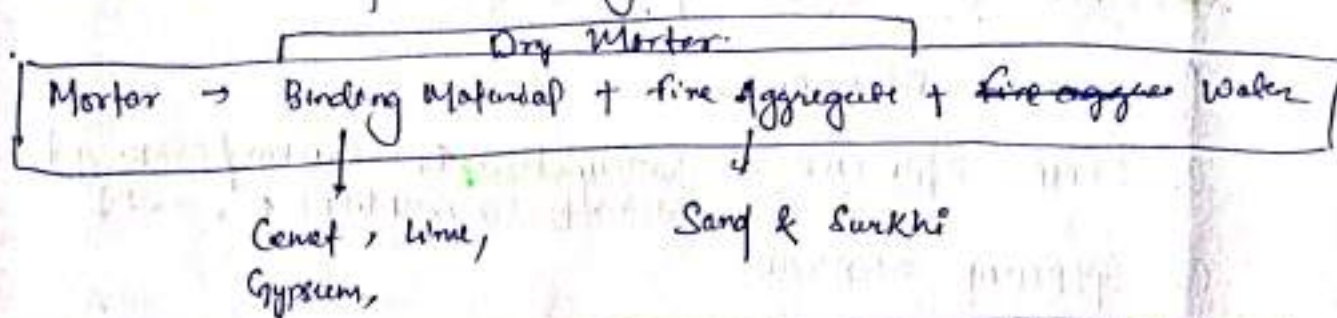 Dry Morter.
Mortar → Binding Material + fine Aggregate + fine aggre Water
Cemet, Lime, Sand & Surkhi
Gypsum,